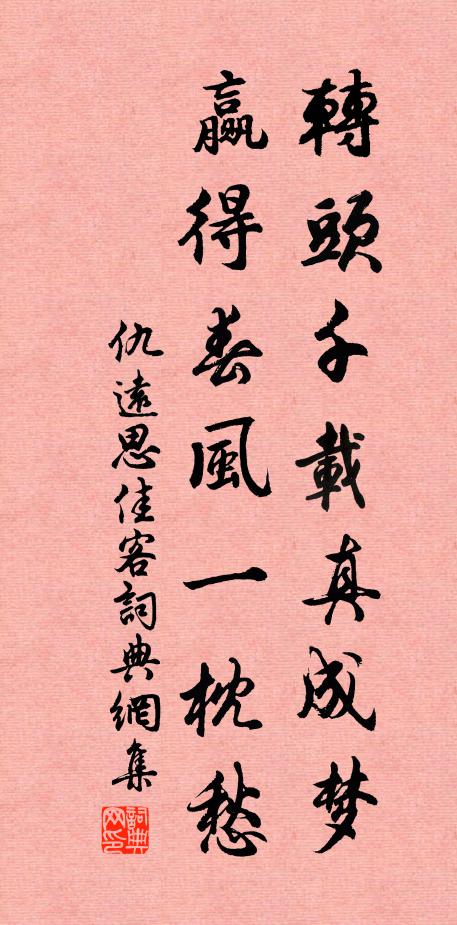 轉頭千載真成梦
贏得春風一枕愁
仇遠思佳客詞典網集
詞典网印